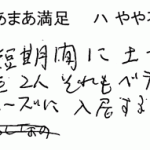 あまあ満足 ハ やや
短期間に土
を2人それもベテ
ーズに入居する